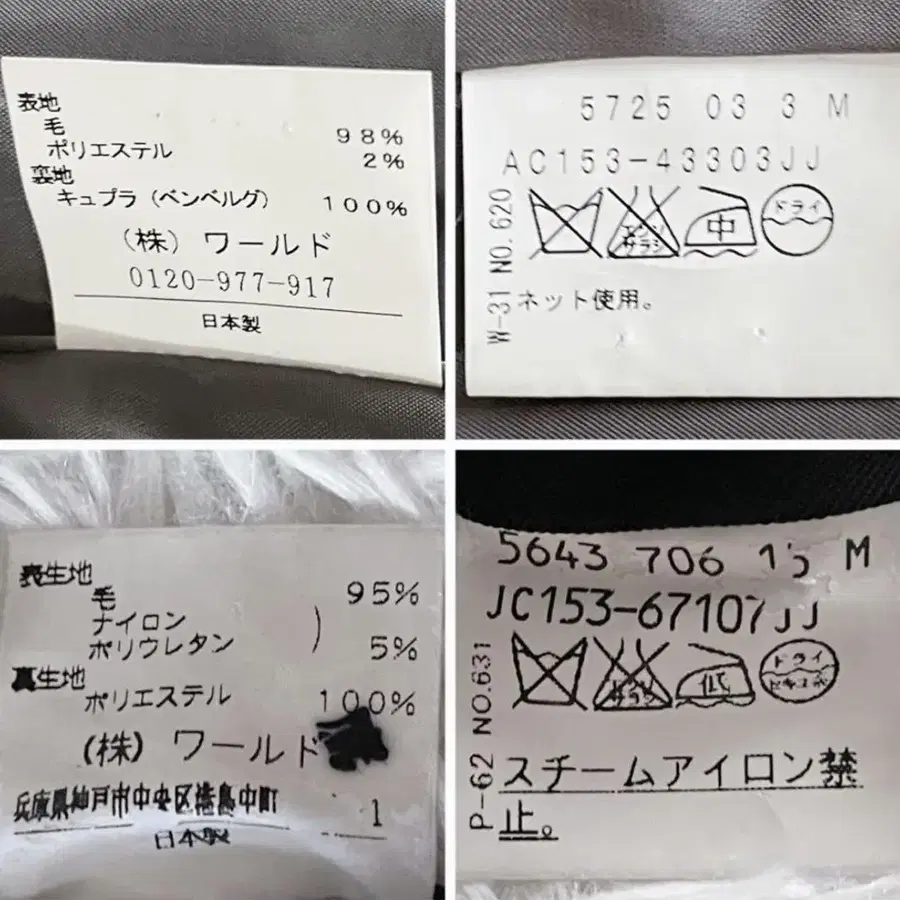 表地
毛 98%
ポリエステル 2%
裏地
キュプラ（ベンベルグ） 100%
（株）ワールド
0120-977-917
日本製
5725 03 3 M
AC153-43303JJ
エンソ
サラシ
中
ドライ
W-31 NO.620
ネット使用。
表生地
毛 95%
ナイロン
ポリウレタン ) 5%
裏生地
ポリエステル 100%
（株）ワールド
兵庫県神戸市中央区港島中町
1
日本製
5643 706 M
JC153-67107JJ
エンソ
サラシ
低
ドライ
セキユ系
P-62 NO.631
スチームアイロン禁
止。